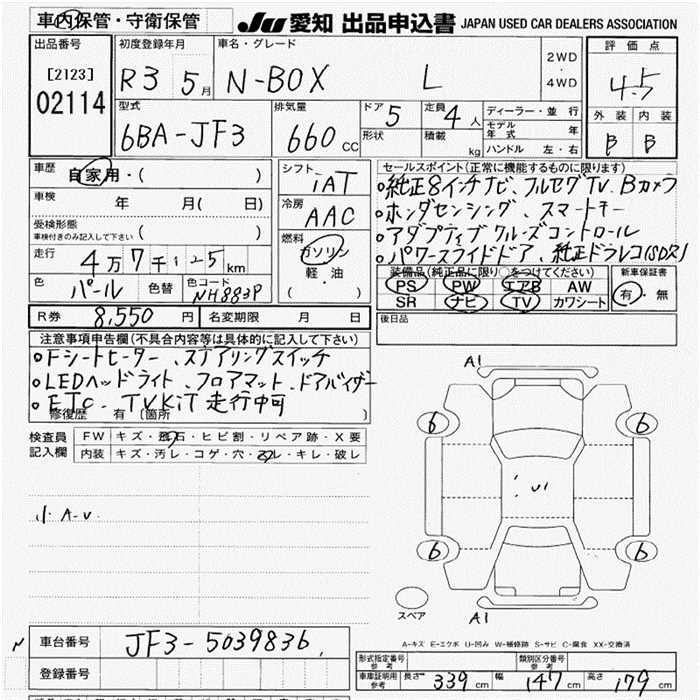 車内保管・守衛保管
JU 愛知 出品申込書 JAPAN USED CAR DEALERS ASSOCIATION
出品番号
[2123]
02114
初度登録年月
R3 5月
車名・グレード
N-BOX L
2WD
・
4WD
評価点
4.5
外装 内装
B B
型式
6BA-JF3
排気量
660 cc
ドア 5
形状
定員 4人
積載 kg
ディーラー・並行
モデル年式 年
ハンドル 左・右
車歴
自家用・( )
車検
年 月( 日)
受検形態
車検付きのみ記入して下さい ( )
走行
4万7千125km
色
パール
色替
色コード
NH883P
シフト
iAT
冷房
AAC
燃料
ガソリン
軽・油
( )
セールスポイント(正常に機能するものに限ります)
○純正8インチナビ、フルセグTV、Bカメラ
○ホンダセンシング、スマートキー
○アダプティブクルーズコントロール
○パワースライドドア、純正ドラレコ(SDR)
装備品(純正品に限り○をつけてください)
PS PW エアB AW
SR ナビ TV カワシート
新車保証書
有・無
R券 8,550円 名変期限 月 日
後日品
注意事項申告欄(不具合内容等は具体的に記入して下さい)
○Fシートヒーター、ステアリングスイッチ
○LEDヘッドライト、フロアマット、ドアバイザー
○ETC、TVKiT走行中可
修復歴 有 〔箇所 〕
検査員
記入欄
FW キズ・飛石・ヒビ割・リペア跡・X要
内装 キズ・汚レ・コゲ・穴・スレ・キレ・破レ
小A-U
A1
6 6
U1
6 6
スペア
A1
A-キズ E-エクボ U-凹み W-補修跡 S-サビ C-腐食 XX-交換済
N
車台番号 JF3-5039836
登録番号
形式指定番号
参考
類別区分番号
参考
車庫証明用
参考
長さ 339cm 幅 147cm 高さ 179cm